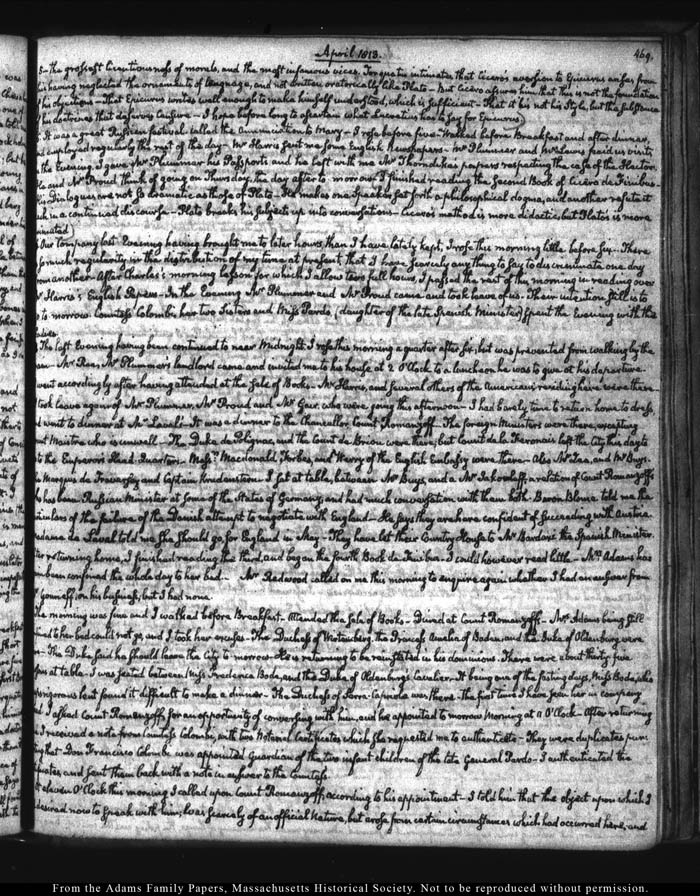 April 1813.
469.
the grossest licentiousness of morals, and the most infamous vices. Torquatus intimates that Cicero's aversion to Epicurus arises from
his having neglected the ornaments of language, and not written oratorically like Plato - But Cicero assures him that this is not the foundation
of his objections - That Epicurus writes well enough to make himself understood, which is sufficient - That it is not his Style, but the substance
of his doctrines that deserves Censure - I hope before long to ascertain what Lucretius has to say for Epicurus
It was a great Russian festival called the Annunciation to Mary - I rose before five - Walked before Breakfast and after dinner,
and employed regularly the rest of the day - Mr Harris sent me some English Newspapers - Mr Plummer and Mr Lewis paid us visits
the Evening I gave Mr Plummer his Passports and he left with me Mr Thorndike's papers respecting the case of the Hector.
He and Mr Proud think of going on Thursday, the day after to-morrow. I finished reading the Second Book of Cicero de Finibus -
His Dialogues are not so dramatic as those of Plato - He makes one Speaker set forth a philosophical dogma, and another refute it
in a continued discourse - Plato breaks his subjects up into conversations - Cicero's method is more didactic, but Plato's is more
animated
Our Company last Evening having brought me to later hours than I have lately kept, I rose this morning little before six - There
is so much regularity in the distribution of my time at present, that I have scarcely any thing to say to discriminate one day
from another. After Charles's morning lesson for which I allow two full hours, I passed the rest of this morning in reading over
Mr Harris's English Papers - In the Evening Mr Plummer and Mr Proud came and took leave of us - Their intention still is to
go to morrow. Countess Colombi, her two Sisters and Miss Pardo, (daughter of the late Spanish Minister) spent the Evening with the
Ladies.
The last Evening having been continued to near Midnight, I rose this morning a quarter after six, but was prevented from walking by the
Mr Plummer's landlord came and invited me to his house at 2 O'Clock to a luncheon he was to give at his departure.
I went accordingly after having attended at the Sale of Books - Mr Harris, and several others of the Americans residing here were there
I took leave again of Mr Plummer, Mr Proud and Mr Gair, who were going this afternoon - I had barely time to return home, to dress,
and went to dinner at Mr Laval's - It was a dinner to the Chancellor, Count Romanzoff - The foreign Ministers were there, excepting
Count Maistre who is unwell - The Duke de Polignac, and the Count de Brion were there, but Count de la Ferronais left the City ten days
to the Emperor's Head Quarters - Messrs Macdonald, Forbes, and Werry of the English Embassy were there - Also Mr Zea, and Mr Buys.
Marquis de Traversay and Captain Krusenstern - I sat at table, between Mr Buys, and a Mr Jakowleff, a relation of Count Romanzoff's
He has been Russian Minister at some of the States of Germany, and had much conversation with them both. Baron Blome told me the
particulars of the failure of the Danish attempt to negotiate with England - He says they are here confident of succeeding with Austria.
Madame de Laval told me she should go for England in May - They have let their Country House to Mr Bardaxi the Spanish Minister.
After returning home, I finished reading the third, and began the fourth Book de Finibus - I could however read little - Mrs Adams has
been confined the whole day to her bed - Mr Redwood called on me this morning to enquire again whether I had an answer from
on his business, but I had none.
The morning was fine and I walked before Breakfast - Attended the Sale of Books - Dined at Count Romanzoff's - Mrs Adams being still
confined to her bed could not go, and I took her excuses - The Duchess of Wirtemberg, the Princess Amelia of Baden, and the Duke of Oldenburg were
there - The Duke said he should leave the City to morrow - He is returning to be reinstated in his dominions. There were about thirty five
persons at table - I was seated between Miss Frederica Bode, and the Duke of Oldenburg's Cavalier. It being one of the fasting days, Miss Bode, who
a rigorous lent found it difficult to make a dinner - The Duchess of Serra-Capriola was there - the first time I have seen her in company
I asked Count Romanzoff, for an opportunity of conversing with him, and he appointed to morrow Morning at 11 O'Clock - After returning
I received a note from Countess Colombi, with two Notarial Certificates which she requested me to authenticate - They were duplicates
that Don Francisco Colombi was appointed Guardian of the two infant children of the late General Pardo - I authenticated the
Certificates, and sent them back with a note in answer to the Countess
At eleven O'Clock this morning I called upon Count Romanzoff, according to his appointment - I told him that the object upon which I
desired now to speak with him, was scarcely of an official Nature, but arose from certain circumstances which had occurred here, and
From the Adams Family Papers, Massachusetts Historical Society. Not to be reproduced without permission.